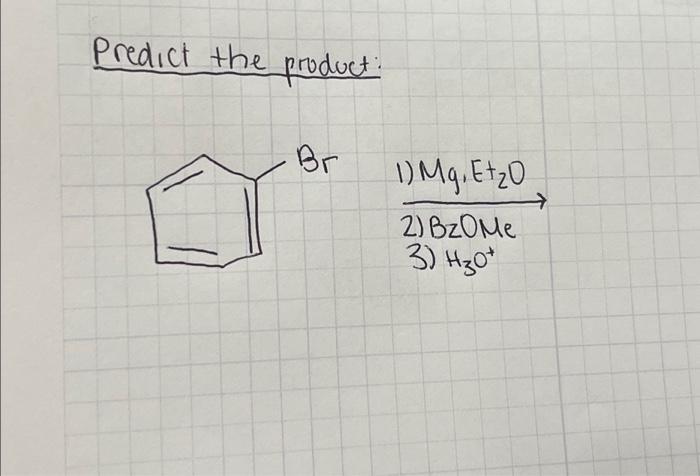 Predict the product:
Br
1) Mg, Et₂O
2) BzOMe
3) H₃O⁺